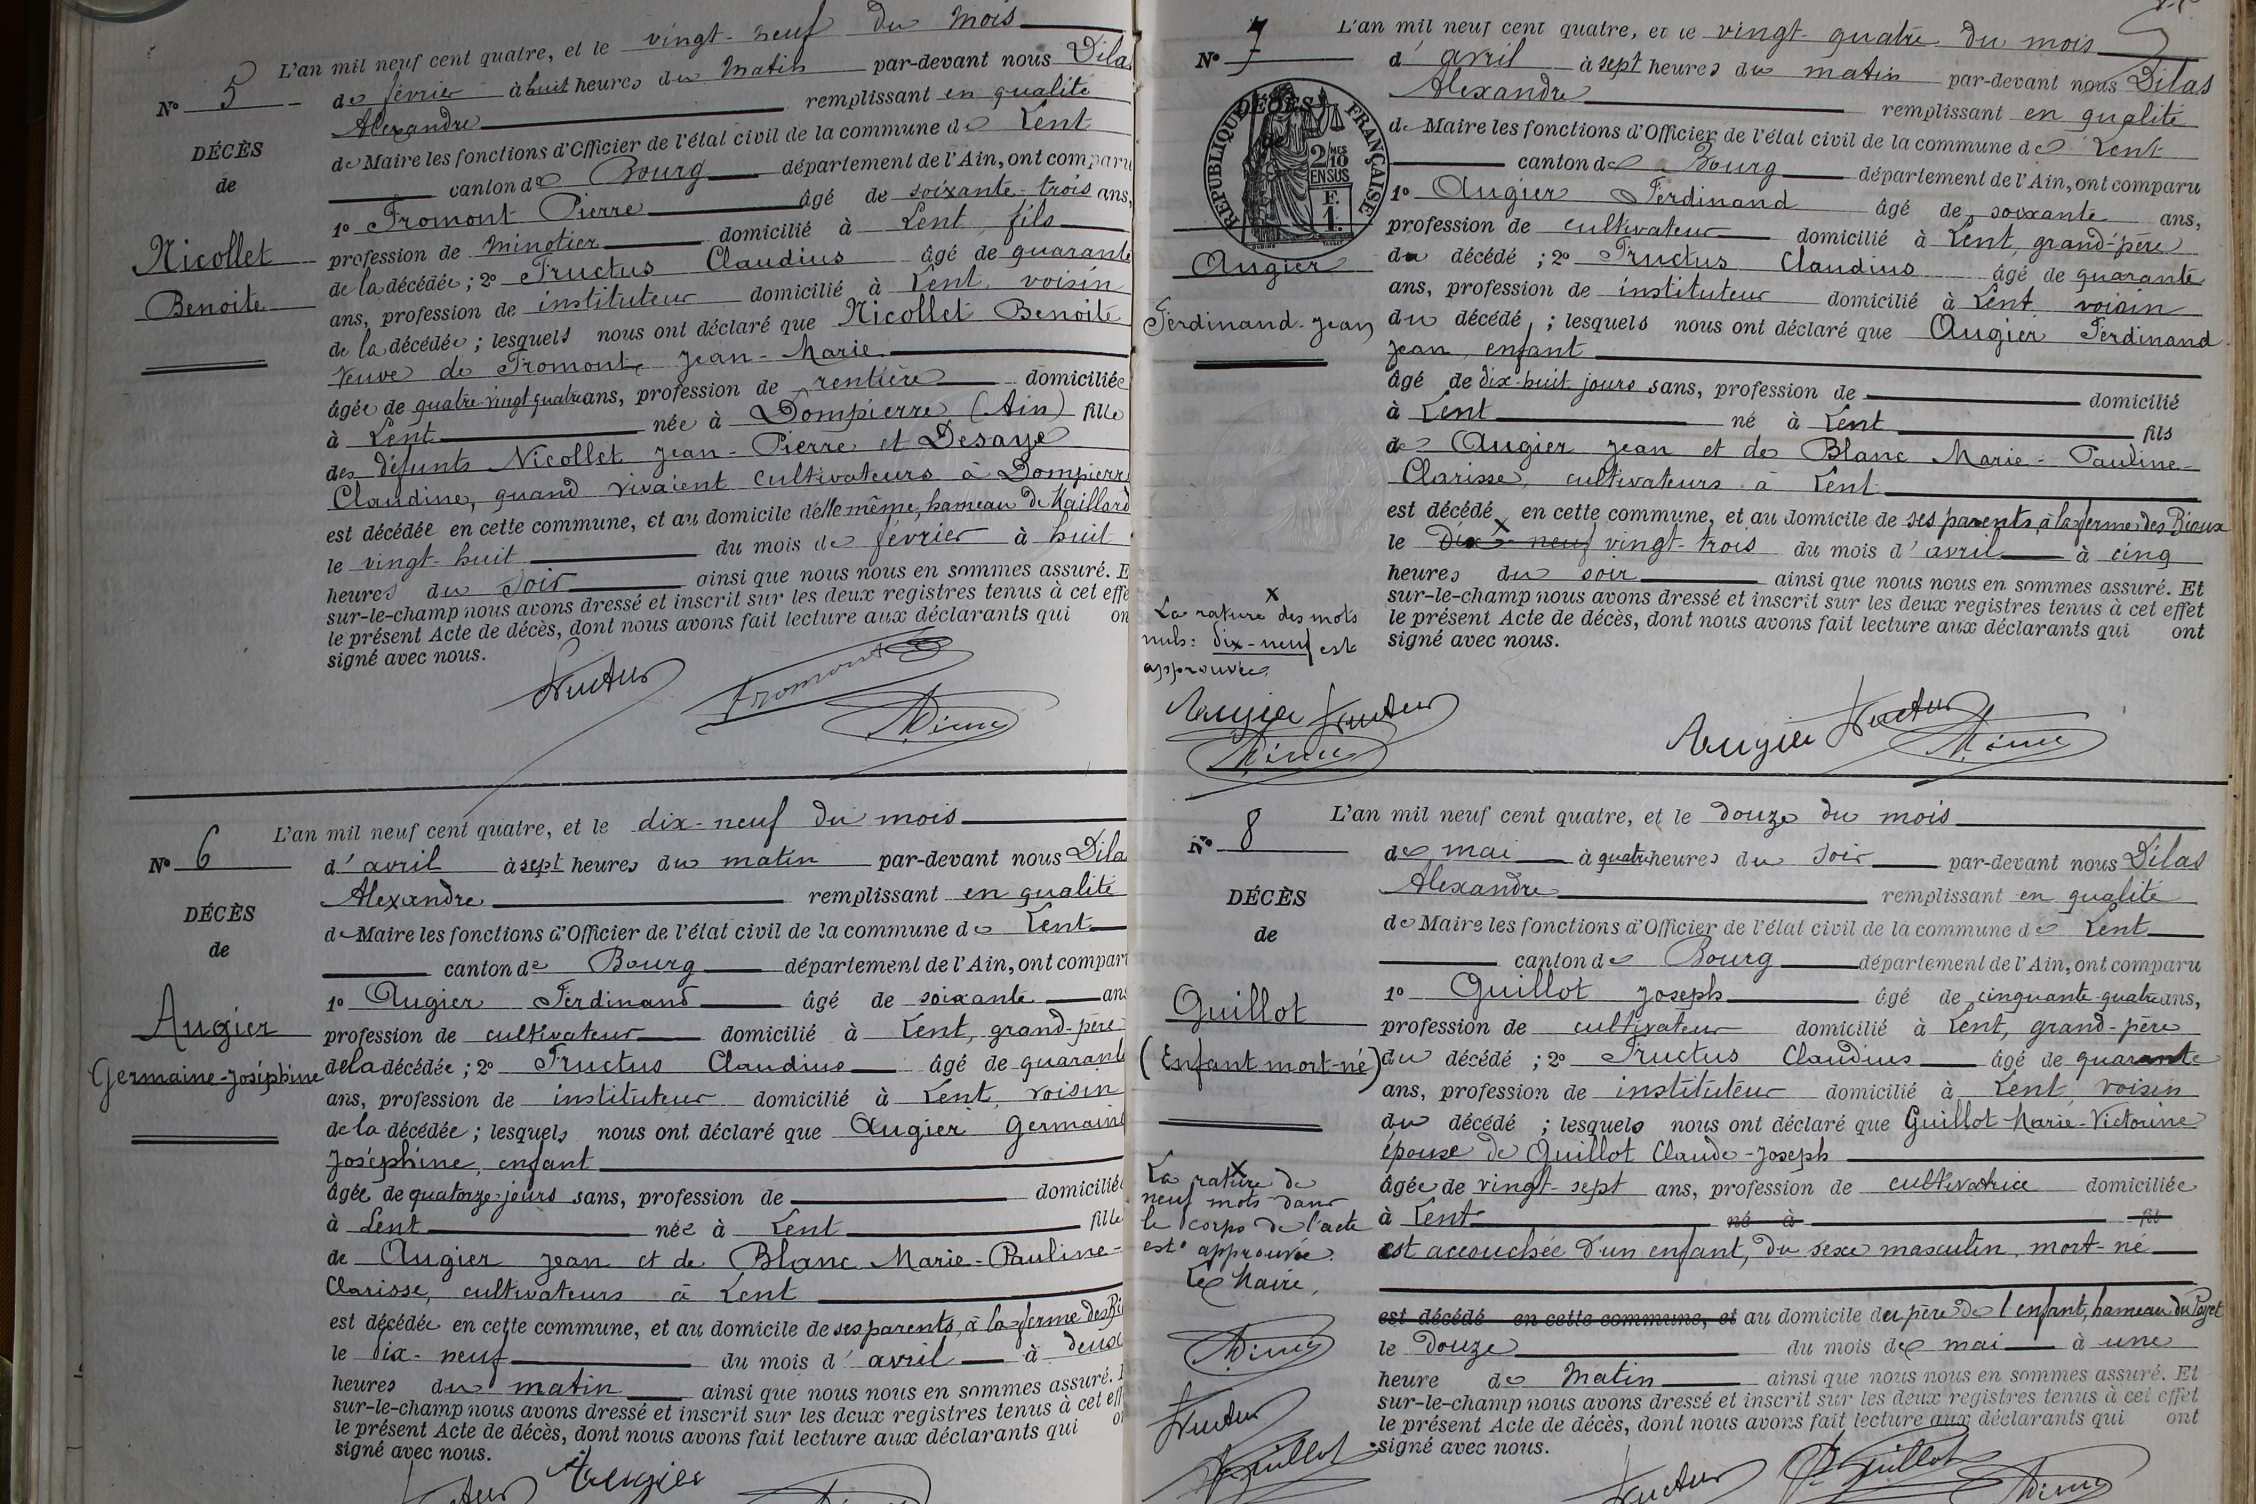 L'an mil neuf cent quatre, et le vingt-neuf du mois
N° 5
de février à huit heures du matin par-devant nous Dila
Alexandre remplissant en qualité
DÉCÈS
de Maire les fonctions d'Officier de l'état civil de la commune de Lent
de
canton de Bourg département de l'Ain, ont comparu
1° Fromont Pierre âgé de soixante-trois ans,
Nicollet
profession de minotier domicilié à Lent, fils
de la décédée ; 2° Fructus Claudius âgé de quarante
Benoite
ans, profession de instituteur domicilié à Lent, voisin
de la décédée ; lesquels nous ont déclaré que Nicollet Benoite
veuve de Fromont, Jean-Marie
âgée de quatre-vingt quatre ans, profession de rentière domiciliée
à Lent née à Dompierre (Ain) fille
des défunts Nicollet Jean-Pierre et Desaye
Claudine, quand vivaient cultivateurs à Dompierre
est décédée en cette commune, et au domicile d'elle même, hameau de Maillard
le vingt-huit du mois de février à huit
heures du soir ainsi que nous nous en sommes assuré. E
sur-le-champ nous avons dressé et inscrit sur les deux registres tenus à cet effe
le présent Acte de décès, dont nous avons fait lecture aux déclarants qui on
signé avec nous.
Fructus Fromont Dilas
L'an mil neuf cent quatre, et le dix-neuf du mois
N° 6
d'avril à sept heures du matin par-devant nous Dila
Alexandre remplissant en qualité
DÉCÈS
de Maire les fonctions d'Officier de l'état civil de la commune de Lent
de
canton de Bourg département de l'Ain, ont compar
1° Augier Ferdinand âgé de soixante ans
Augier
profession de cultivateur domicilié à Lent, grand-père
Germaine-Joséphine
de la décédée ; 2° Fructus Claudius âgé de quarant
ans, profession de instituteur domicilié à Lent, voisin
de la décédée ; lesquels nous ont déclaré que Augier Germaine
Joséphine, enfant
âgée de quatorze jours sans, profession de domiciliée
à Lent née à Lent fille
de Augier Jean et de Blanc Marie-Pauline-
Clarisse, cultivateurs à Lent
est décédée en cette commune, et au domicile de ses parents, à la ferme des Ri
le dix-neuf du mois d'avril à deux
heures du matin ainsi que nous nous en sommes assuré.
sur-le-champ nous avons dressé et inscrit sur les deux registres tenus à cet eff
le présent Acte de décès, dont nous avons fait lecture aux déclarants qui on
signé avec nous.
Augier
L'an mil neuf cent quatre, et le vingt-quatre du mois
N° 7
d'avril à sept heures du matin par-devant nous Dilas
Alexandre remplissant en qualité
DÉCÈS
RÉPUBLIQUE FRANÇAISE
2/10 MES EN SUS
F. 1.
de Maire les fonctions d'Officier de l'état civil de la commune de Lent
canton de Bourg département de l'Ain, ont comparu
1° Augier Ferdinand âgé de soixante ans,
profession de cultivateur domicilié à Lent, grand-père
Augier
du décédé ; 2° Fructus Claudius âgé de quarante
ans, profession de instituteur domicilié à Lent, voisin
Ferdinand-Jean
du décédé ; lesquels nous ont déclaré que Augier Ferdinand
Jean, enfant
âgé de dix-huit jours sans, profession de domicilié
à Lent né à Lent fils
de Augier Jean et de Blanc Marie-Pauline-
Clarisse, cultivateurs à Lent
est décédé en cette commune, et au domicile de ses parents, à la ferme des Rioux
le dix-neuf x vingt-trois du mois d'avril à cinq
heures du soir ainsi que nous nous en sommes assuré. Et
sur-le-champ nous avons dressé et inscrit sur les deux registres tenus à cet effet
le présent Acte de décès, dont nous avons fait lecture aux déclarants qui ont
signé avec nous.
x
La rature des mots
nuls : dix-neuf est
approuvée.
Augier Fructus
Dilas
Augier Fructus
Dilas
L'an mil neuf cent quatre, et le douze du mois
N° 8
de mai à quatre heures du soir par-devant nous Dilas
Alexandre remplissant en qualité
DÉCÈS
de Maire les fonctions d'Officier de l'état civil de la commune de Lent
de
canton de Bourg département de l'Ain, ont comparu
1° Guillot Joseph âgé de cinquante-quatre ans,
Guillot
profession de cultivateur domicilié à Lent, grand-père
(Enfant mort-né)
du décédé ; 2° Fructus Claudius âgé de quarante
ans, profession de instituteur domicilié à Lent, voisin
du décédé ; lesquels nous ont déclaré que Guillot Marie-Victorine
épouse de Guillot Claude-Joseph
âgée de vingt-sept ans, profession de cultivatrice domiciliée
à Lent né à fils
est accouchée d'un enfant, du sexe masculin, mort-né
est décédé en cette commune, et au domicile du père de l'enfant, hameau du Poyet
le douze du mois de mai à une
heure de matin ainsi que nous nous en sommes assuré. Et
sur-le-champ nous avons dressé et inscrit sur les deux registres tenus à cet effet
le présent Acte de décès, dont nous avons fait lecture aux déclarants qui ont
signé avec nous.
x
La rature de
neuf mots dans
le corps de l'acte
est approuvée.
Le Maire,
Dilas
Fructus
Guillot
Fructus Guillot Dilas